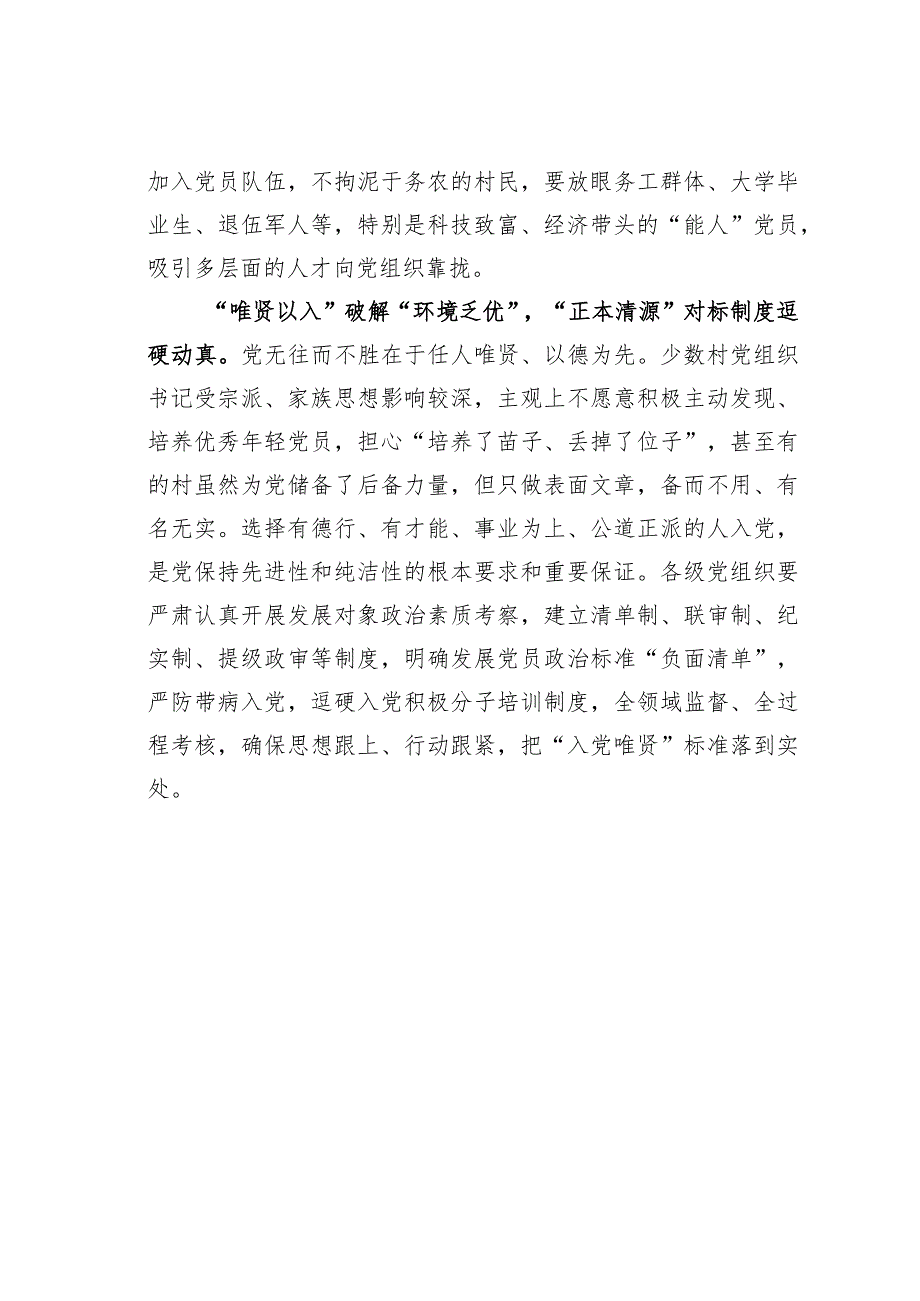 加入党员队伍，不拘泥于务农的村民，要放眼务工群体、大学毕
业生、退伍军人等，特别是科技致富、经济带头的“能人”党员，
吸引多层面的人才向党组织靠拢。
“唯贤以入”破解“环境乏优”，“正本清源”对标制度逗
硬动真。党无往而不胜在于任人唯贤、以德为先。少数村党组织
书记受宗派、家族思想影响较深，主观上不愿意积极主动发现、
培养优秀年轻党员，担心“培养了苗子、丢掉了位子”，甚至有
的村虽然为党储备了后备力量，但只做表面文章，备而不用、有
名无实。选择有德行、有才能、事业为上、公道正派的人入党，
是党保持先进性和纯洁性的根本要求和重要保证。各级党组织要
严肃认真开展发展对象政治素质考察，建立清单制、联审制、纪
实制、提级政审等制度，明确发展党员政治标准“负面清单”，
严防带病入党，逗硬入党积极分子培训制度，全领域监督、全过
程考核，确保思想跟上、行动跟紧，把“入党唯贤”标准落到实
处。